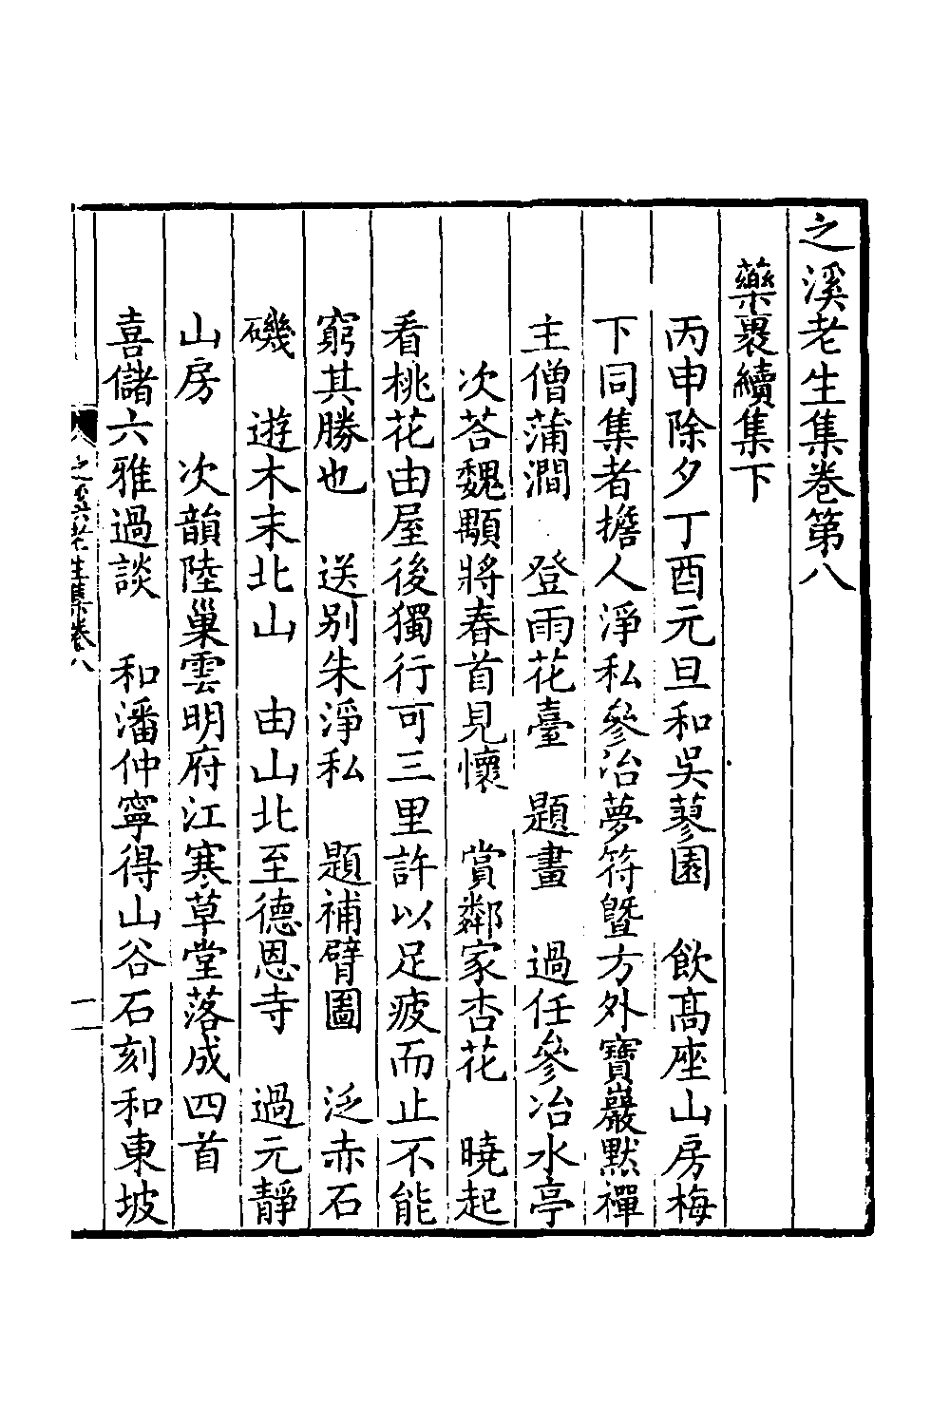 之溪老生集卷第八
藥裹續集下
丙申除夕丁酉元旦和吳蓼園　飲髙座山房梅
下同集者擔人淨私參冶夢符曁方外寶巖默禪
主僧蒲澗　登雨花臺　題畫　過任參冶水亭
次荅魏顒將春首見懷　賞鄰家杏花　曉起
看桃花由屋後獨行可三里許以足疲而止不能
窮其勝也　送别朱淨私　題補臂圖　泛赤石
磯　遊木末北山　由山北至德恩寺　過元靜
山房　次韻陸巢雲明府江寒草堂落成四首
喜儲六雅過談　和潘仲寧得山谷石刻和東坡
之溪老生集卷八
一